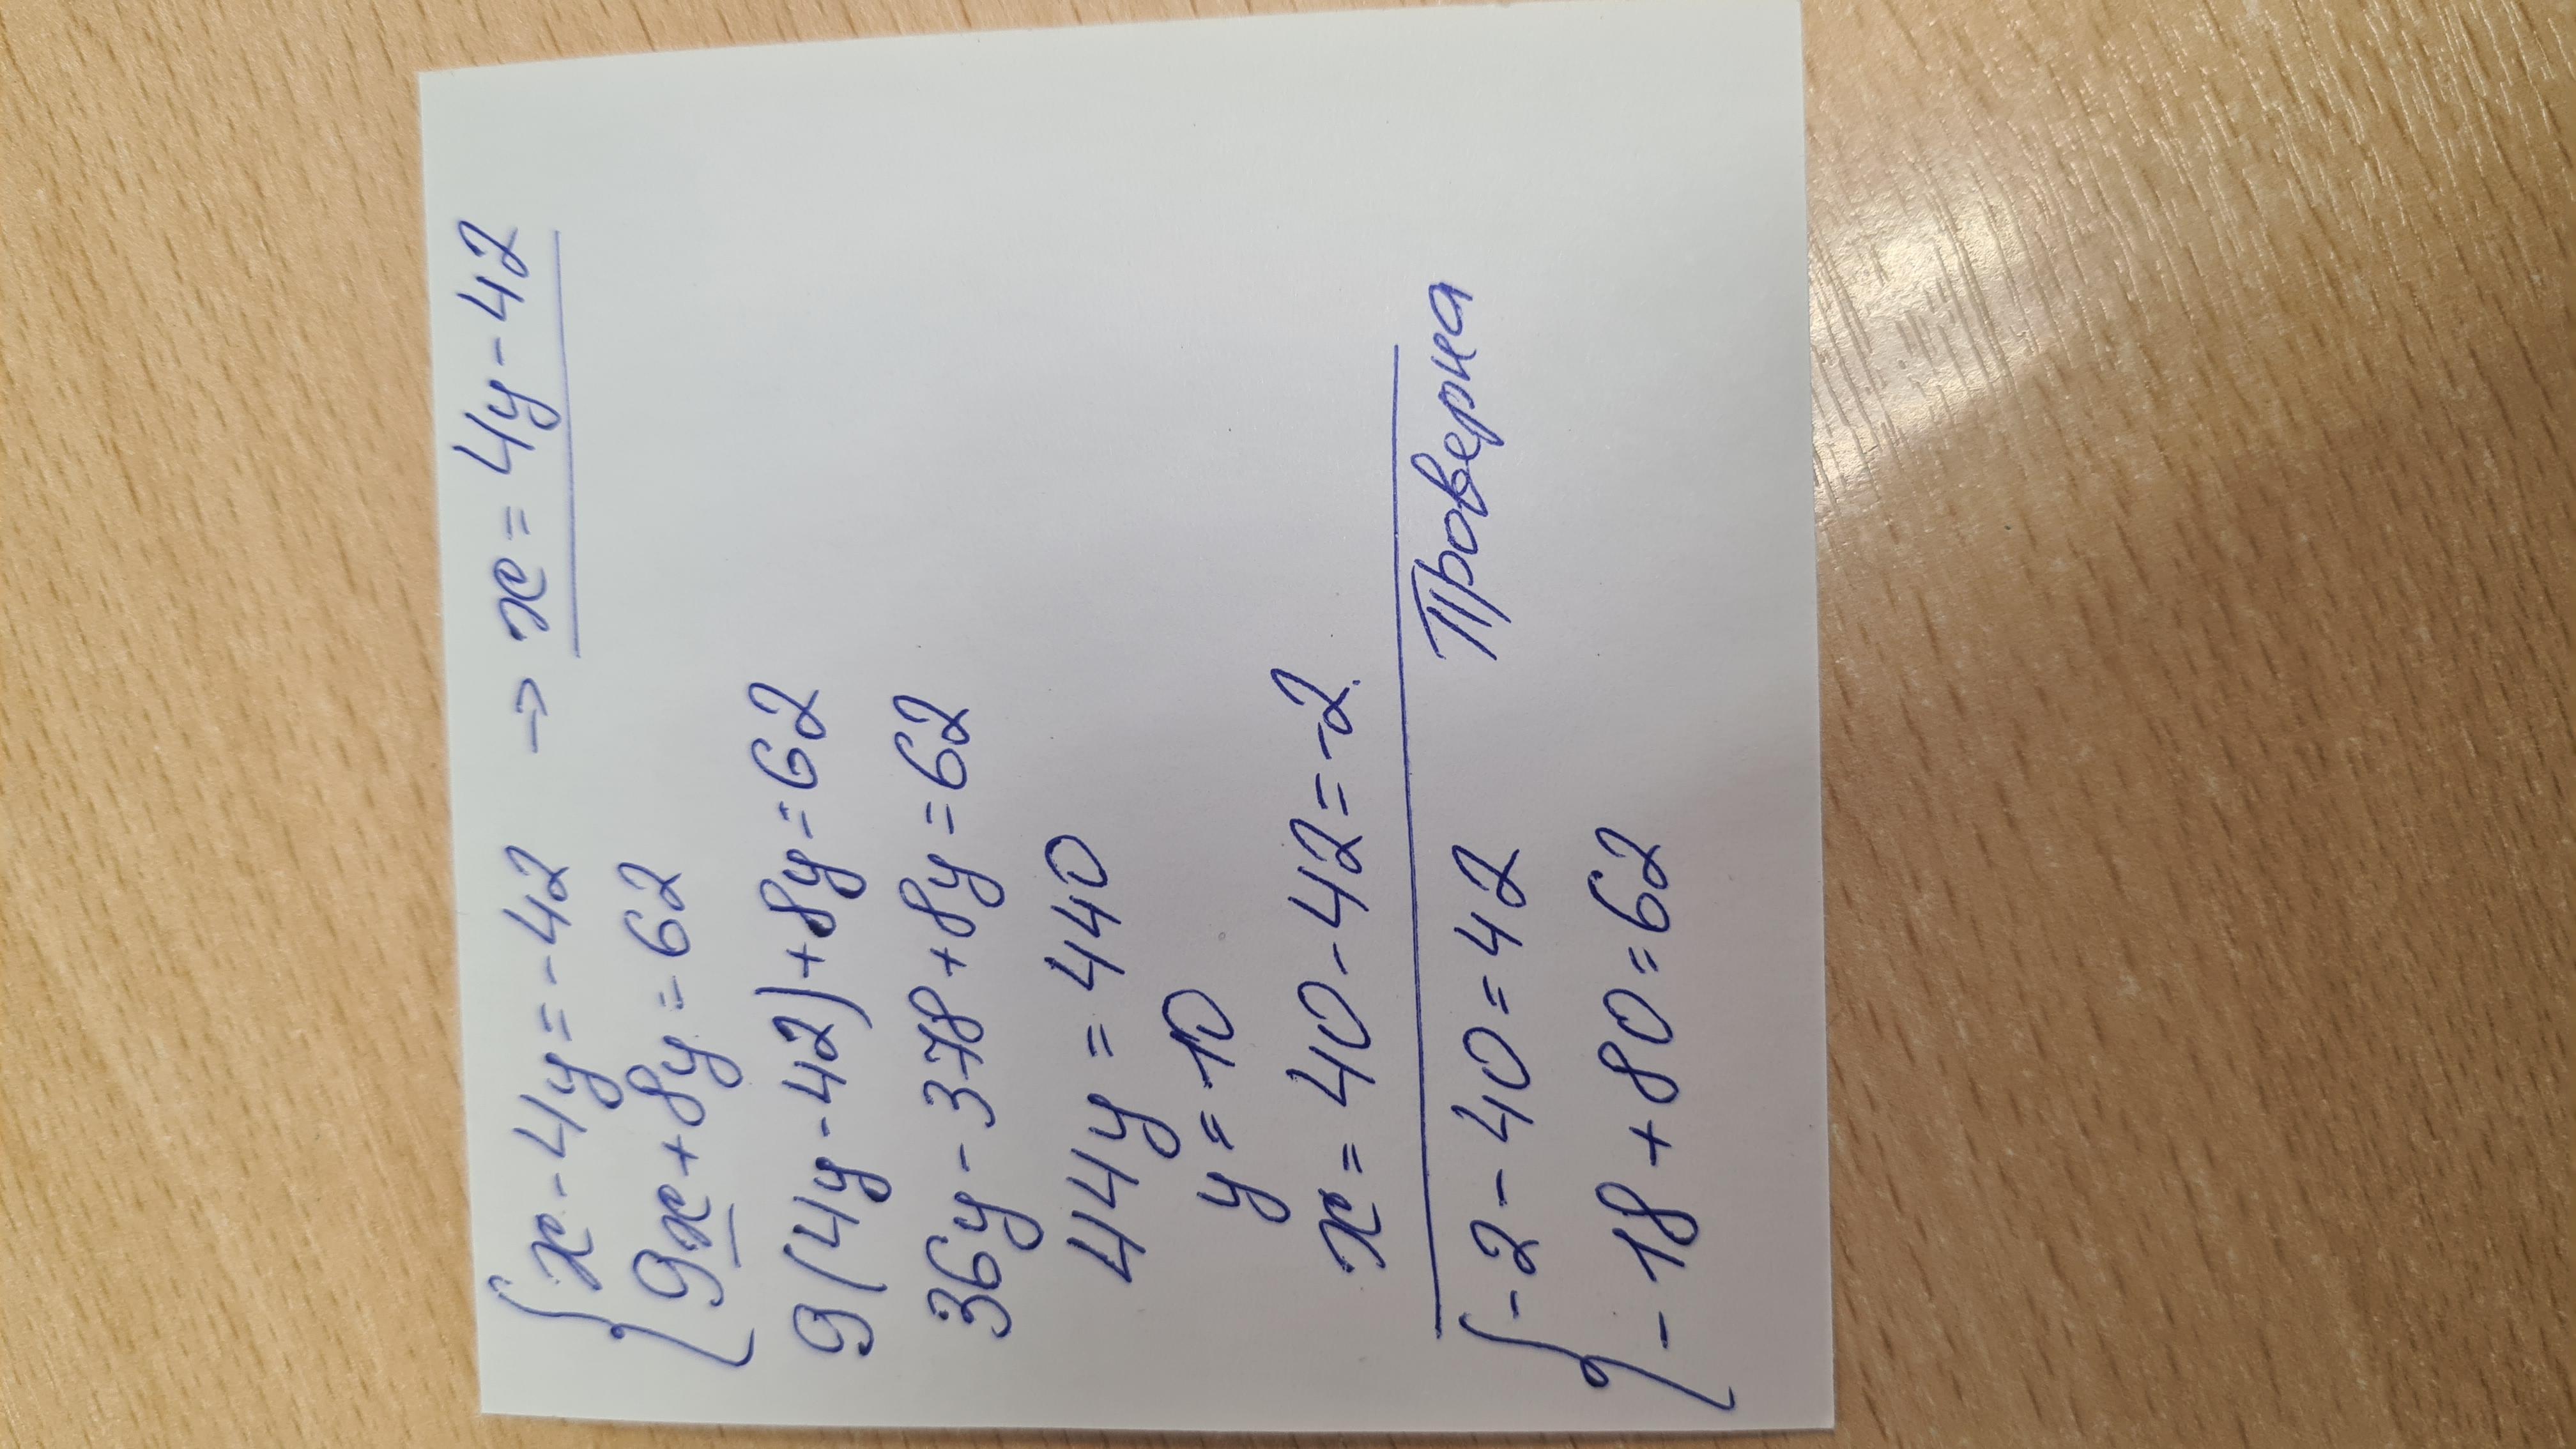 x-4y=-42 → x=4y-42
9x+8y=62
9(4y-42)+8y=62
36y-378+8y=62
44y=440
y=10
x=40-42=-2
Проверка
-2-40=42
-18+80=62